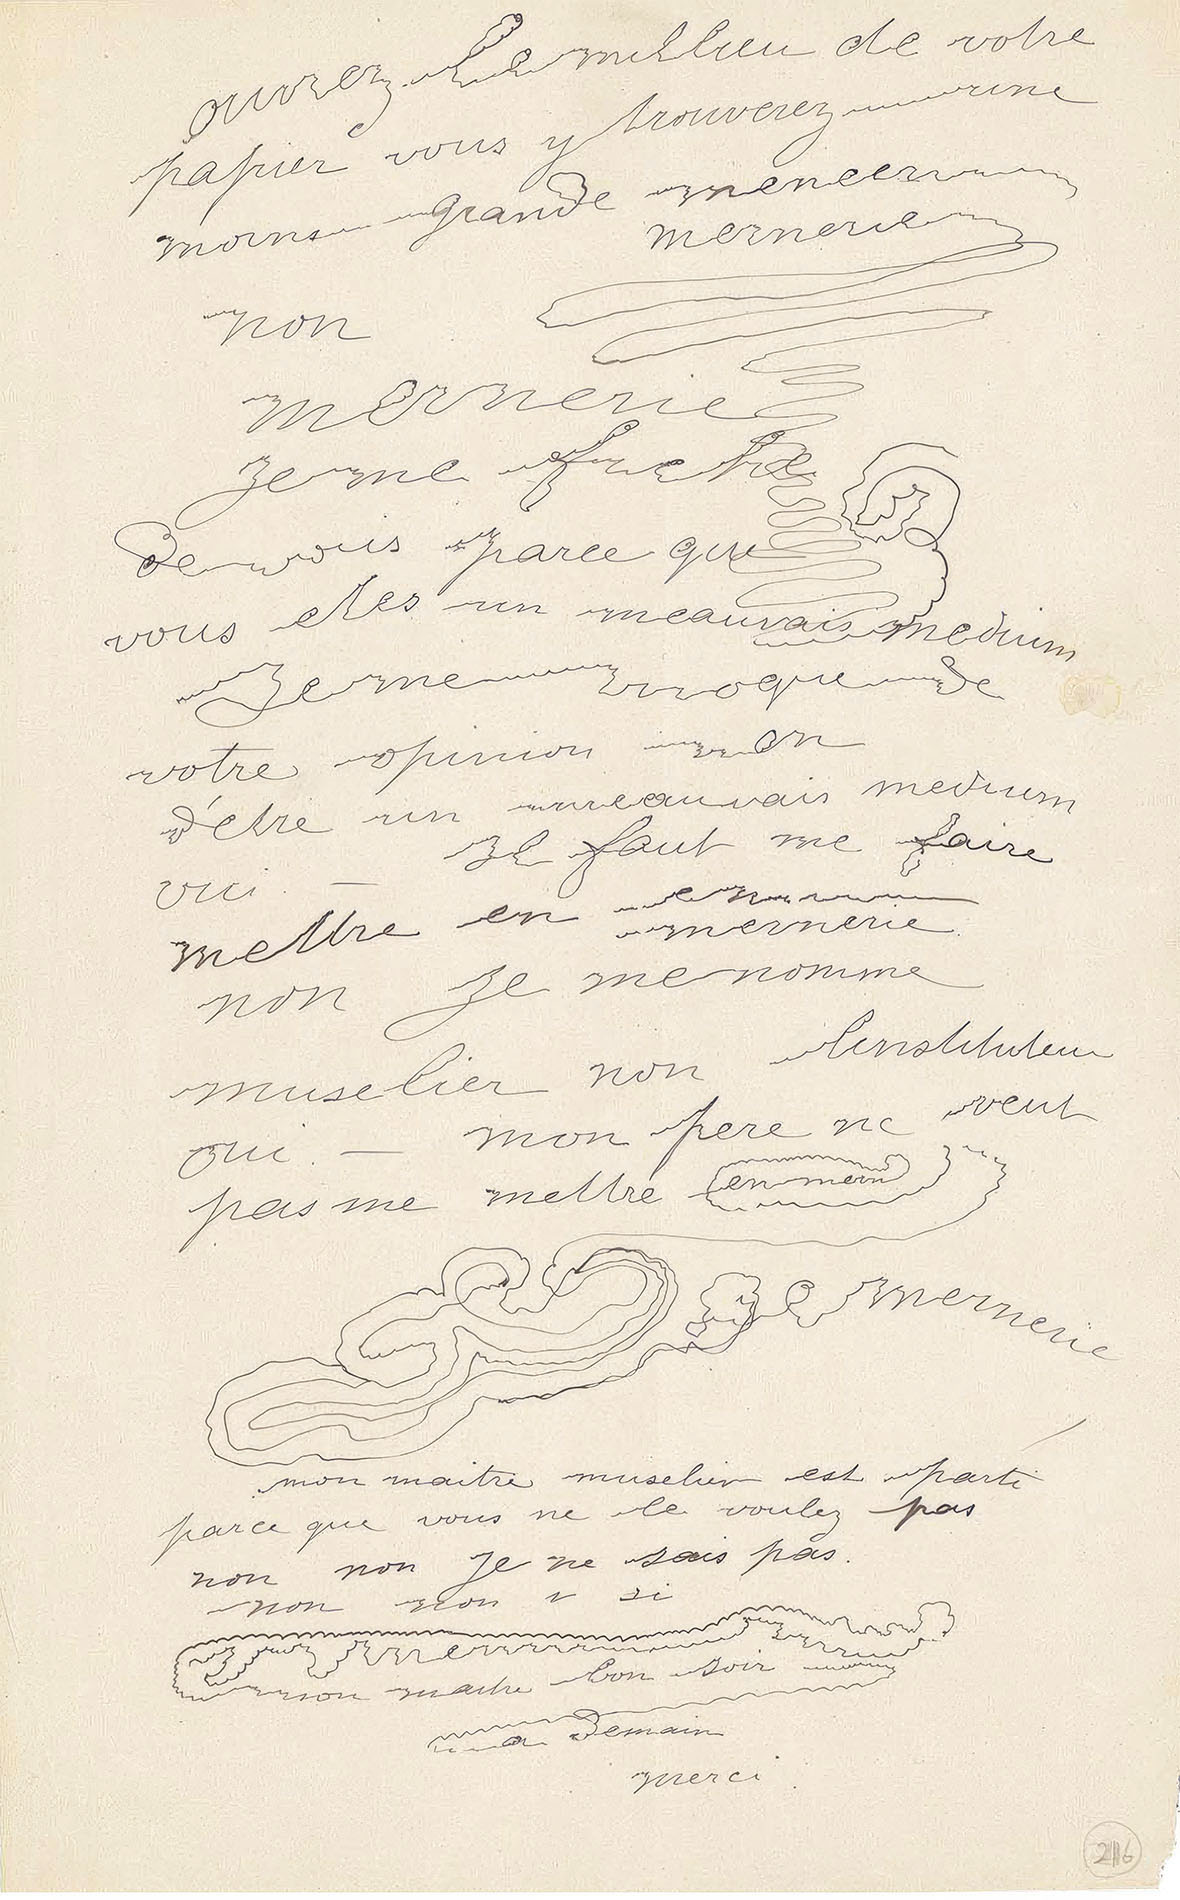 ouvrez le millieu de votre
papier vous y trouverez une
moins grande
mernerie
non
mernerie
je me fiche
de vous parce que
vous etes un meauvais medium
Je me moque de
votre opinion non
d'etre un meauvais medium
oui. — Il faut me faire
mettre en
mernerie.
non je me nomme
muselier non linstituteur
oui. — mon pere ne veut
pas me mettre en mern
de mernerie
mon maitre muselier est parti
parce que vous ne le voulez pas
non non je ne sais pas.
non non si
mon maitre bon soir
a demain
merci.
216